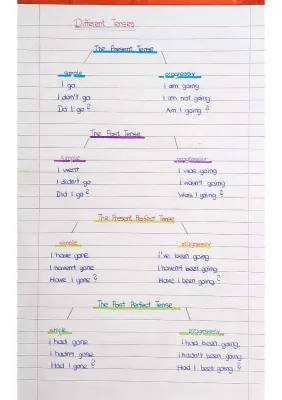 Different Tenses
The Present Tense
simple progressiv
I go I am going
I don't go I am not going
Do I go? Am I going?
The Past Tense
simple progressiv
I went I was going
I didn't go I wasn't going
Did I go? Was I going?
The Present Perfect Tense
simple progressiv
I have gone I've been going
I haven't gone I haven't been going
Have I gone? Have I been going?
The Past Perfect Tense
simple progressiv
I had gone I had been going
I hadn't gone I hadn't been going
Had I gone? Had I been going?